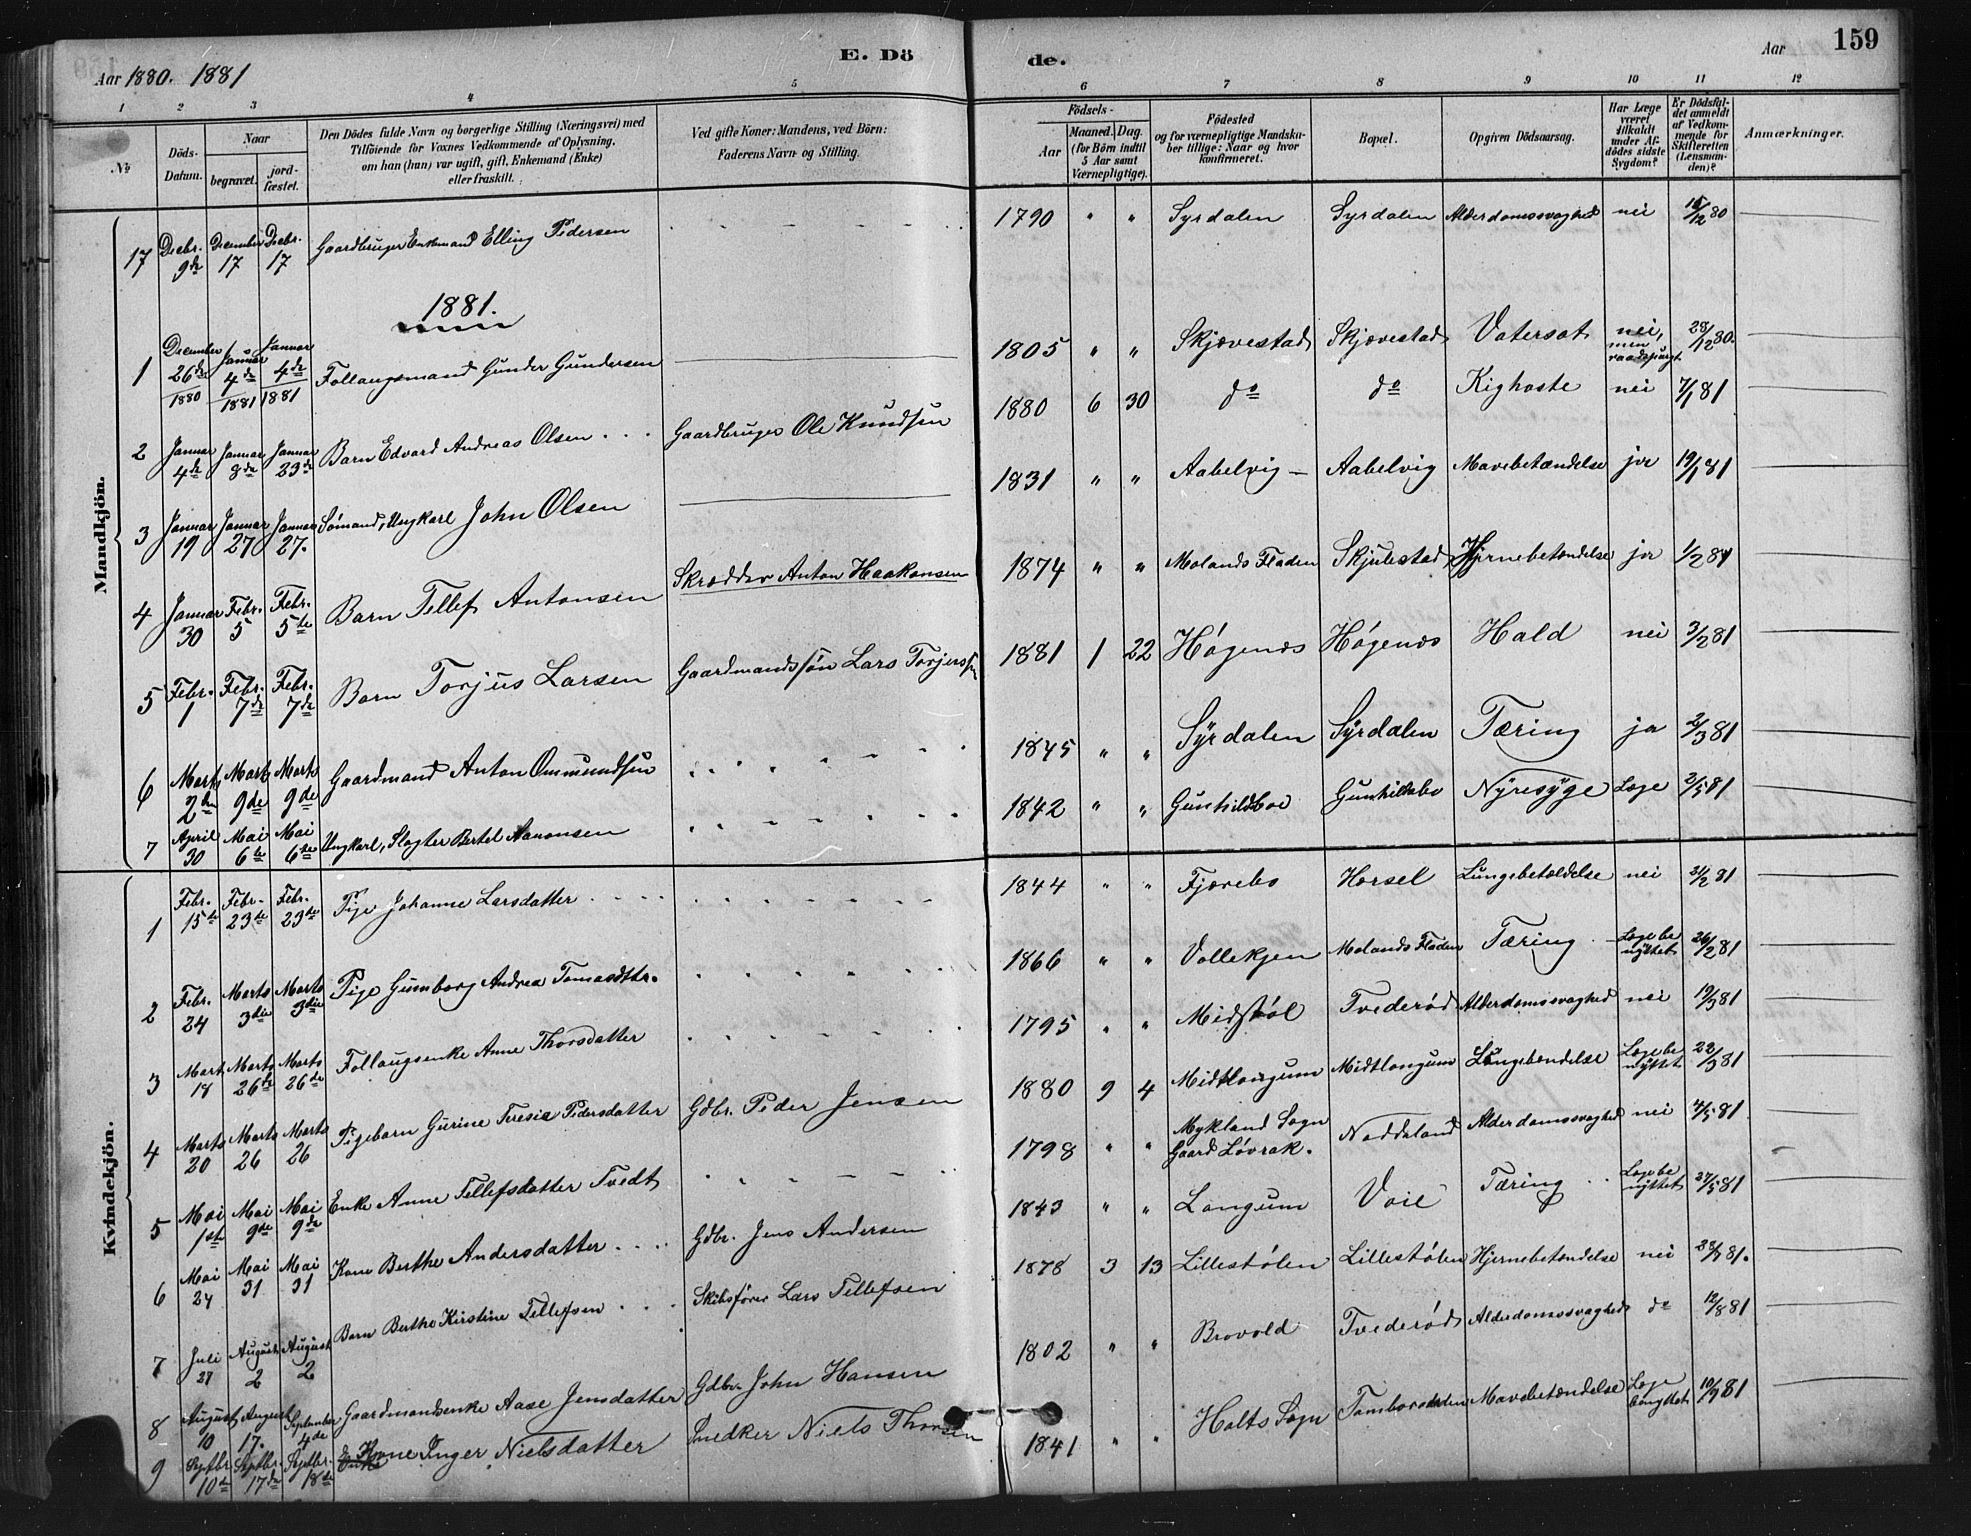 Aar 1880. 1881
E. Dö
de.
Aar
159
1 2 3 4 5 6 7 8 9 10 11 12
№
Döds-Datum.
Naar
begravet.
jord-fæstet.
Den Dödes fulde Navn og borgerlige Stilling (Næringsvei) med
Tilföiende for Voxnes Vedkommende af Oplysning,
om han (hun) var ugift, gift, Enkemand (Enke)
eller fraskilt.
Ved gifte Koner: Mandens, ved Börn:
Faderens Navn og Stilling.
Födsels-
Aar
Maaned. Dag.
(for Börn indtil
5 Aar samt
Værnepligtige).
Födested
og for værnepligtige Mandska-
ber tillige: Naar og hvor
konfirmeret.
Bopæl.
Opgiven Dödsaarsag.
Har Læge
været
tilkaldt
under Af-
dödes sidste
Sygdom?
Er Dödsfal-
det anmeldt
af Vedkom-
mende for
Skifteretten
(Lensman-
den)?
Anmærkninger.
Mandkjön.
17 Decbr. 9de December 17 Decbr. 17 Gaardbruger Enkemand Elling Pedersen - - - 1790 " " Syrdalen Syrdalen Alderdomssvaghed nei 18/12 80
1881.
1 December 26de 1880 Januar 4de 1881 Januar 4de 1881 Follaugsmand Gunder Gundersen 1805 " " Skjævestad Skjævestad Vatersot nei, men raadspurgt 28/12 80.
2 Januar 4de Januar 8de Januar 23de Barn Edvard Andreas Olsen Gaardbruger Ole Knudsen 1880 6 30 do do Kighoste nei 7/1 81
3 Januar 19 Januar 27 Januar 27. Sømand, Ungkarl John Olsen 1831 " " Aabelvig - Aabelvig Mavebetændelse ja 19/1 81
4 Januar 30 Febr. 5 Febr. 5te Barn Tellef Antonsen Skrædder Anton Haakonsen 1874 " " Molands Fladen Skjulestad Hjernebetændelse ja 1/2 81
5 Febr. 1 Febr. 7de Febr. 7de Barn Torjus Larsen Gaardmandssøn Lars Torjussen 1881 1 22 Høgenæs Høgenæs Hald nei 3/2 81
6 Marts 2den Marts 9de Marts 9de Gaardmand Anton Ommundsen 1845 " " Syrdalen Syrdalen Tæring ja 2/3 81
7 April 30 Mai 6te Mai 6te Ungkarl, Slagter Bertel Aanonsen 1842 " " Gunhildboe Gunhildbo Nyresyge Læge 2/5 81
Kvindekjön.
1 Febr. 15de Febr. 23de Febr. 23de Pige Johanne Larsdatter 1844 " " Fjærebo Hørsel Lungebetældelse nei 21/2 81
2 Febr. 24 Marts 3die Marts 3die Pige Gunborg Andrea Tomasdtter. 1866 " " Vollekjen Molands Fladen Tæring Læge benyttet 26/2 81
3 Marts 18 Marts 26de Marts 26de Follaugsenke Anne Thorsdatter 1795 " " Midtstøl Tvederød Alderdomssvaghed nei 19/3 81
4 Marts 20 Marts 26 Marts 26 Pigebarn Gurine Teresia Pedersdatter Gdbr. Peder Jensen 1880 9 4 Midtlongum Midtlongum Lungebændelse Læge benyttet 22/3 81
5 Mai 1ste Mai 9de Mai 9de Enke Anne Tellefsdatter Tvedt 1798 " " Mykland Sogn Gaard Løvrak. Noddeland Alderdomssvaghed nei 4/5 81
6 Mai 24 Mai 31 Mai 31 Kone Berthe Andersdatter Gdbr. Jens Andersen 1843 " " Longum Voie Tæring Læge benyttet 27/5 81
7 Juli 27 August 2 August 2 Barn Berthe Kirstine Tellefsen Skibsfører Lars Tellefsen 1878 3 13 Lillestølen Lillestølen Hjernebetændelse nei 28/7 81.
8 August 10 August 17. September 4de Gaardmandsenke Aase Jensdatter Gdbr. John Hansen 1802 " " Brovold Tvederød Alderdomssvaghed do 12/8 81
9 Septbr. 10de Septbr. 17de Septbr. 18de Kone Inger Nielsdatter Snedker Niels Thorsen 1841 " " Holts Sogn Mavebetændelse Læge benyttet 10/9 81